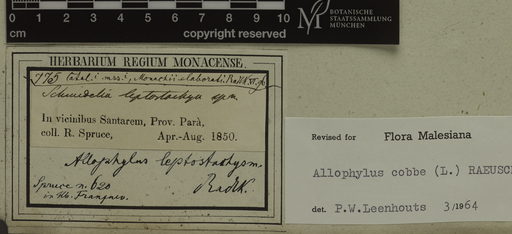 0 1 2 3 4 5 6 7 8 9 10
cm
copyright reserved
BOTANISCHE
STAATSSAMMLUNG
MÜNCHEN
HERBARIUM REGIUM MONACENSE.
775 Monachii elaborati
Schmidelia leptostachya
In vicinibus Santarem, Prov. Parà,
coll. R. Spruce, Apr.-Aug. 1850.
Allophylus leptostachys m.
Spruce n. 620 Radlk.
in Hb. Franquev.
Revised for Flora Malesiana
Allophylus cobbe (L.) RAEUSC
det. P.W. Leenhouts 3/1964